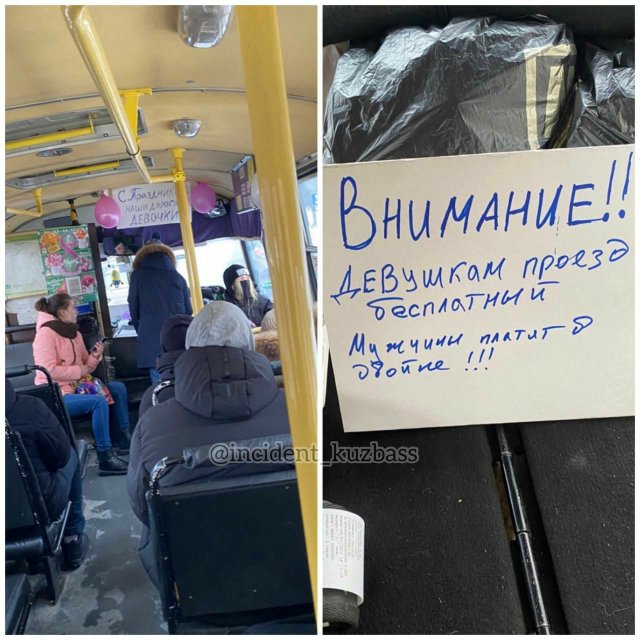 С Праздником
наши дорогие
ДЕВОЧКИ
ВНИМАНИЕ!!
ДЕВУШКАМ проезд
бесплатный
Мужчины платит в
двойне !!!
@incident_kuzbass